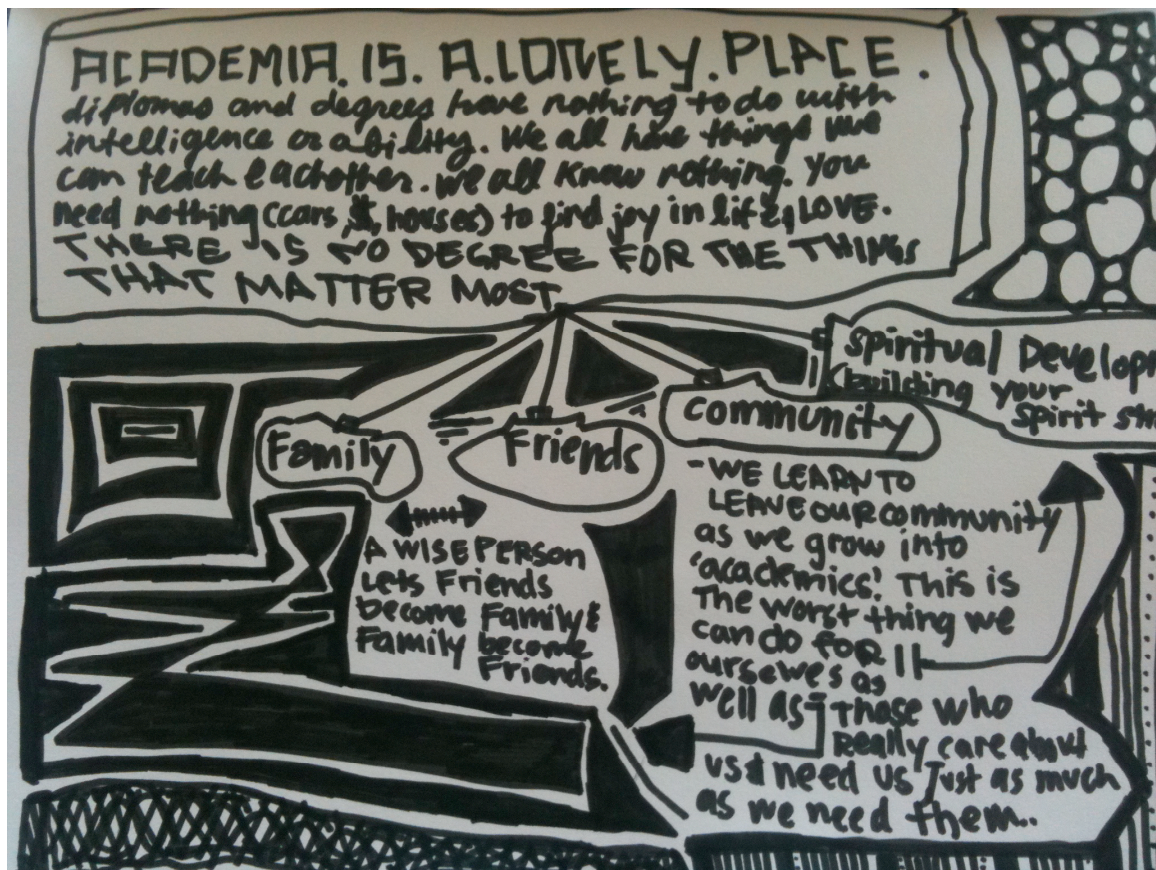 ACADEMIA. IS. A. LONELY. PLACE.
diplomas and degrees have nothing to do with
intelligence or ability. We all have things we
can teach eachother. we all know nothing. you
need nothing (cars, $, houses) to find joy in life, & LOVE.
THERE IS NO DEGREE FOR THE THINGS
THAT MATTER MOST
Spiritual Develop
(building your
Spirit
Family
Friends
community
A WISE PERSON
Lets Friends
become Family &
Family become
Friends.
-WE LEARN TO
LEAVE OUR community
as we grow into
'academics'. This is
The worst thing we
can do for
ourselves as
well as Those who
Really care about
us & need us Just as much
as we need them..